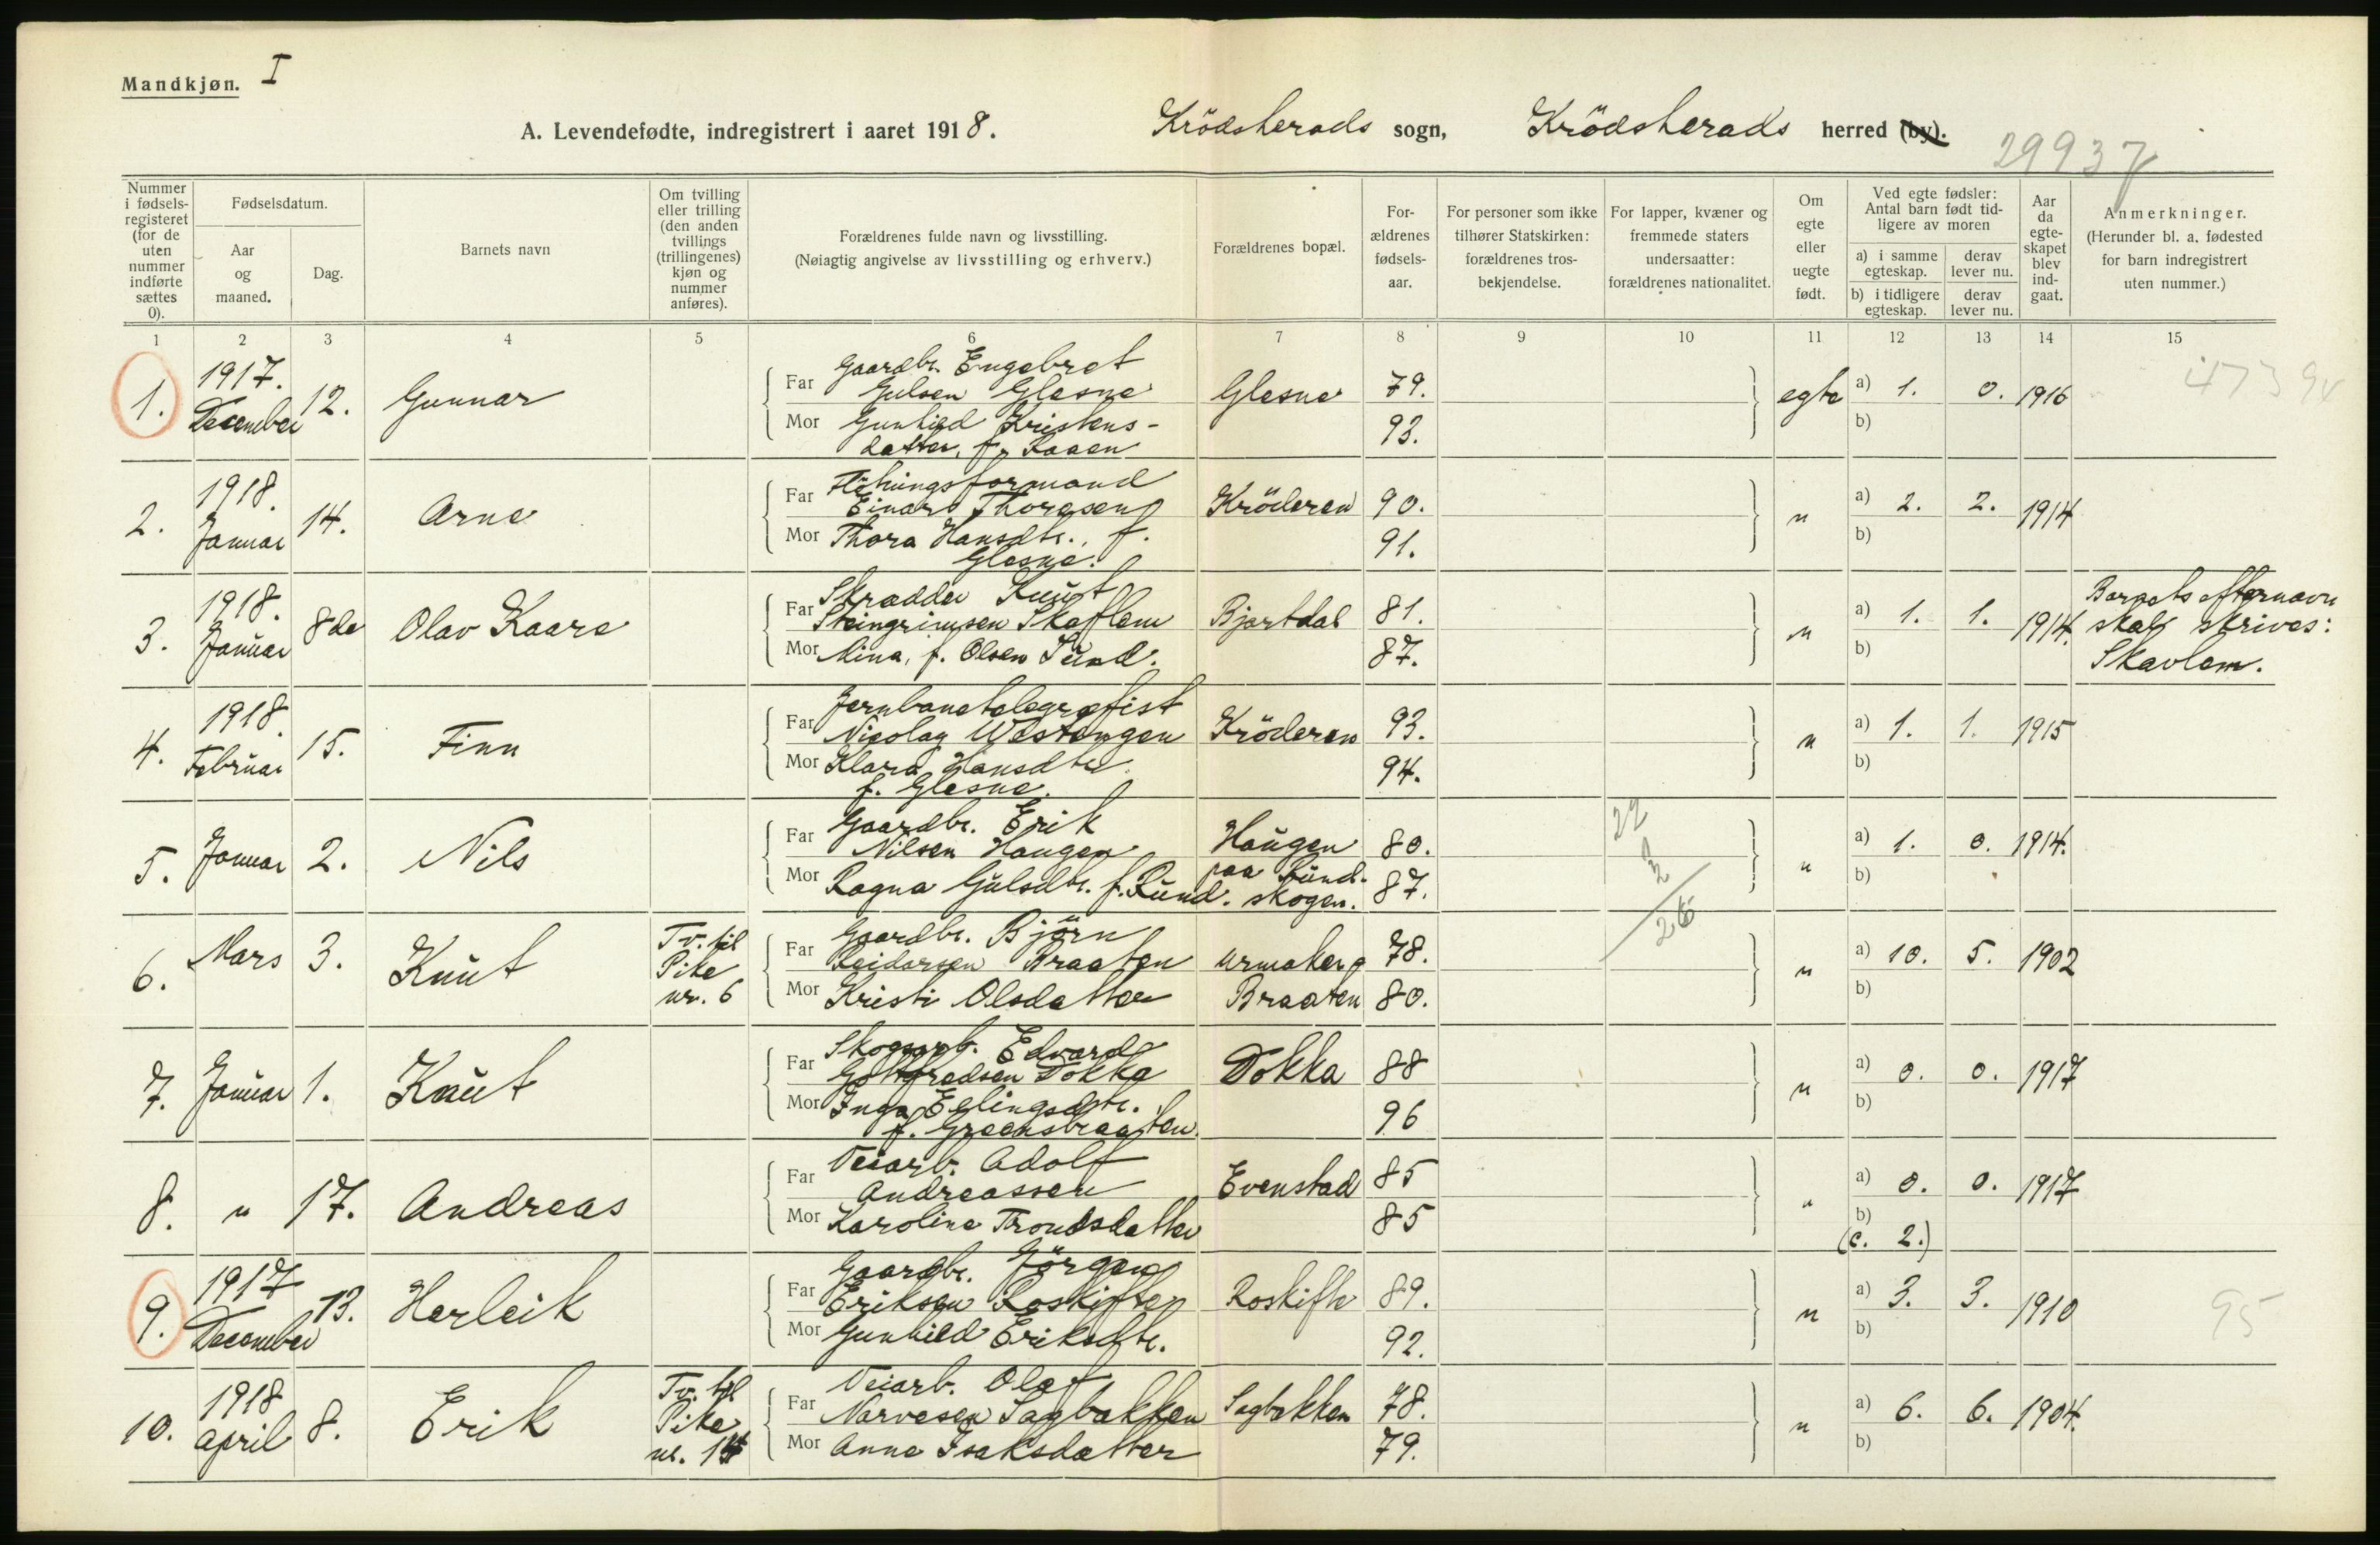 Mandkjøn. I
A. Levendefødte, indregistrert i aaret 1918.
Krödsherads sogn, Krödsherads herred (by).
29937
Nummer i fødsels-registeret (for de uten nummer indførte sættes 0).
Fødselsdatum.
Aar og maaned.
Dag.
Barnets navn
Om tvilling eller trilling (den anden tvillings (trillingenes) kjøn og nummer anføres).
Forældrenes fulde navn og livsstilling.
(Nøiagtig angivelse av livsstilling og erhverv.)
Forældrenes bopæl.
For-ældrenes fødsels-aar.
For personer som ikke tilhører Statskirken: forældrenes tros-bekjendelse.
For lapper, kvæner og fremmede staters undersaatter: forældrenes nationalitet.
Om egte eller uegte født.
Ved egte fødsler: Antal barn født tid-ligere av moren
a) i samme egteskap.
derav lever nu.
b) i tidligere egteskap.
derav lever nu.
Aar da egte-skapet blev ind-gaat.
Anmerkninger.
(Herunder bl. a. fødested for barn indregistrert uten nummer.)
1 2 3 4 5 6 7 8 9 10 11 12 13 14 15
1. 1917. December 12. Gunnar
Far Gaardbr. Engebret
Gulsen Glesne Glesne 79.
Mor Gunhild Kristens-
datter, f. Kaaen 93.
egte a) 1. 0. 1916
b)
2. 1918. Januar 14. Arne
Far Flötningsformand
Einar Thoresen Kröderen 90.
Mor Thora Hansdtr., f.
Glesne. 91.
" a) 2. 2. 1914
b)
3. 1918. Januar 8de Olav Kaare
Far Skrædder Knut
Steingrimsen Skaflem Bjertdal 81.
Mor Mina, f. Olsen Sund. 87.
" a) 1. 1. 1914.
b)
Barnets efternavn
skal skrives:
Skavlem.
4. 1918. Februar 15. Finn
Far Jernbanetelegrafist
Nicolay Westengen Kröderen 93.
Mor Klara Hansdtr.
f. Glesne. 94.
" a) 1. 1. 1915
b)
5. Januar 2. Nils
Far Gaardbr. Erik
Nilsen Haugen Haugen 80.
Mor Ragna Gulsdtr. f. Rund. paa Rund-
skogen. 87.
" a) 1. 0. 1914.
b)
22
6. Mars 3. Knut
Tv. til
Pike
nr. 6
Far Gaardbr. Björn
Reidarsen Braaten 78.
Mor Kristi Olsdatter Braaten 80.
" a) 10. 5. 1902
b)
7. Januar 1. Knut
Far Skogsarb. Edvard
Gottfredsen Dokka Dokka 88
Mor Inga Elingsdtr.
96
" a) 0. 0. 1917
b)
8. " 17. Andreas
Far Veiarb. Adolf
Andreassen Evenstad 85
Mor Karoline Trondsdatter 85
" a) 0. 0. 1917
b)
(c. 2.)
9. 1917 December 13. Herleik
Far Gaardbr. Jörgen
Eriksen Roskifte Roskifte 89.
Mor Gunhild Eriksdtr. 92.
" a) 3. 3. 1910
b)
95
10. 1918 April 8. Erik
Tv. til
Pike
nr. 14
Far Veiarb. Olaf
Narvesen Sagbakken Sagbakken 78.
Mor Anne Isaksdatter 79.
" a) 6. 6. 1904.
b)